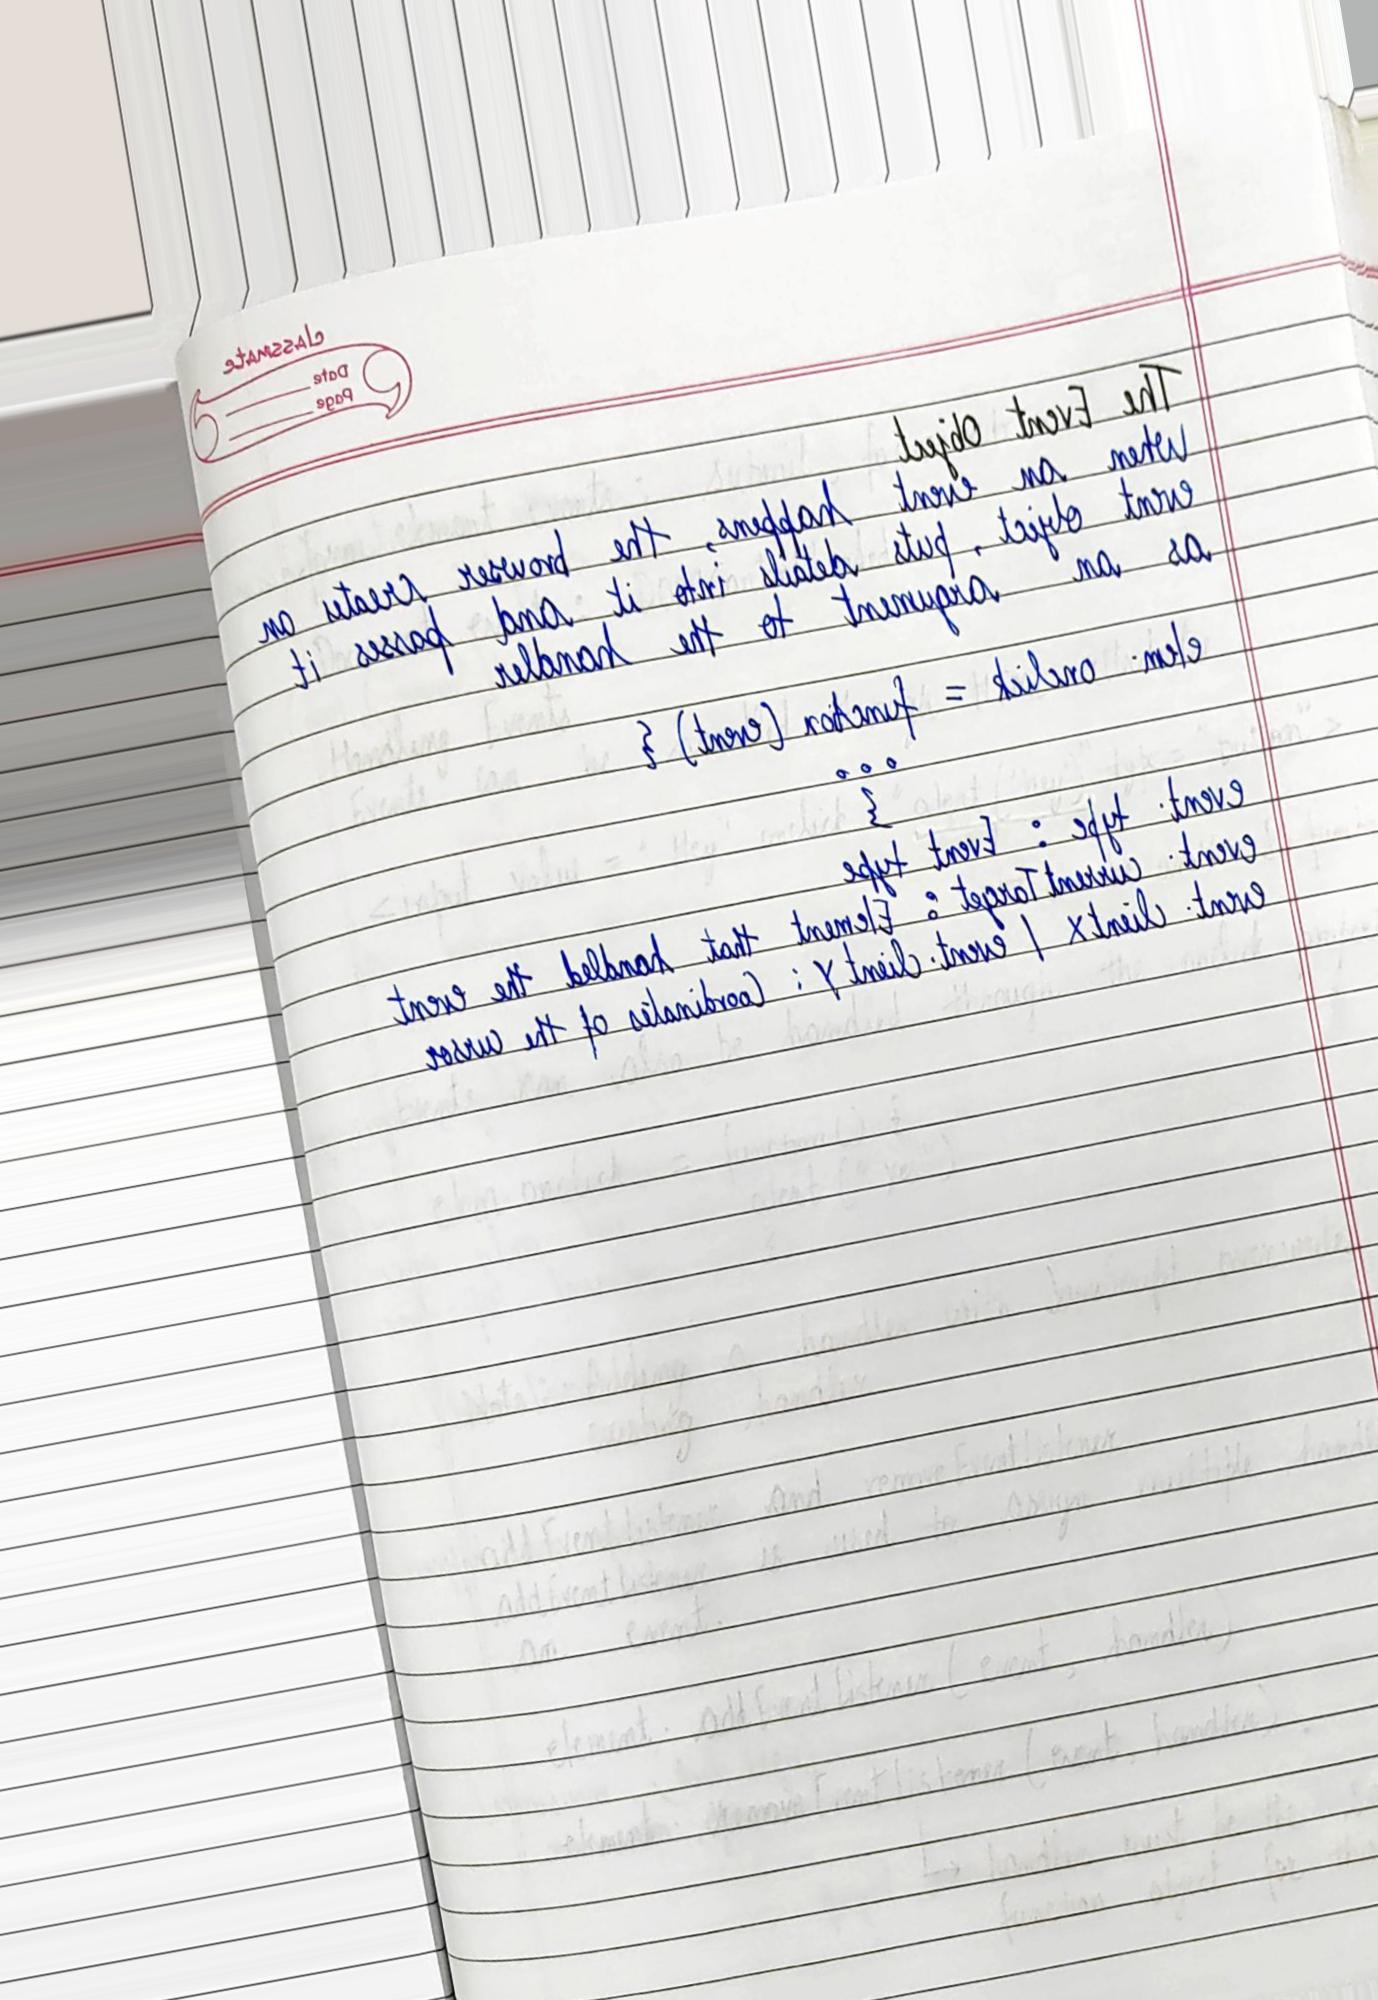 classmate
Date
Page
The Event Object
When an event happens, the browser creates an
event object, puts details into it and passes it
as an argument to the handler
elem. onclick = function (event) {
...
}
event. type : Event type
event. currentTarget : Element that handled the event
event. clientX / event. client Y : Coordinates of the cursor